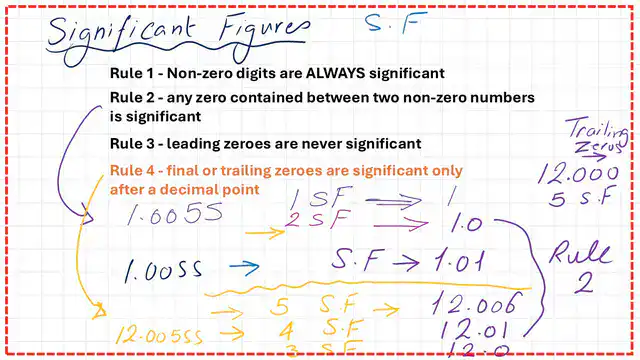 Significant Figures S.F
Rule 1 - Non-zero digits are ALWAYS significant
Rule 2 - any zero contained between two non-zero numbers
is significant
Rule 3 - leading zeroes are never significant
Rule 4 - final or trailing zeroes are significant only
after a decimal point
Trailing
Zeros
12.000
5 S.F
1.0055 1 SF 1
2 SF 1.0
1.0055 S.F 1.01
Rule
2
5 S.F 12.006
12.00555 4 S.F 12.01
3 S.F 12.0